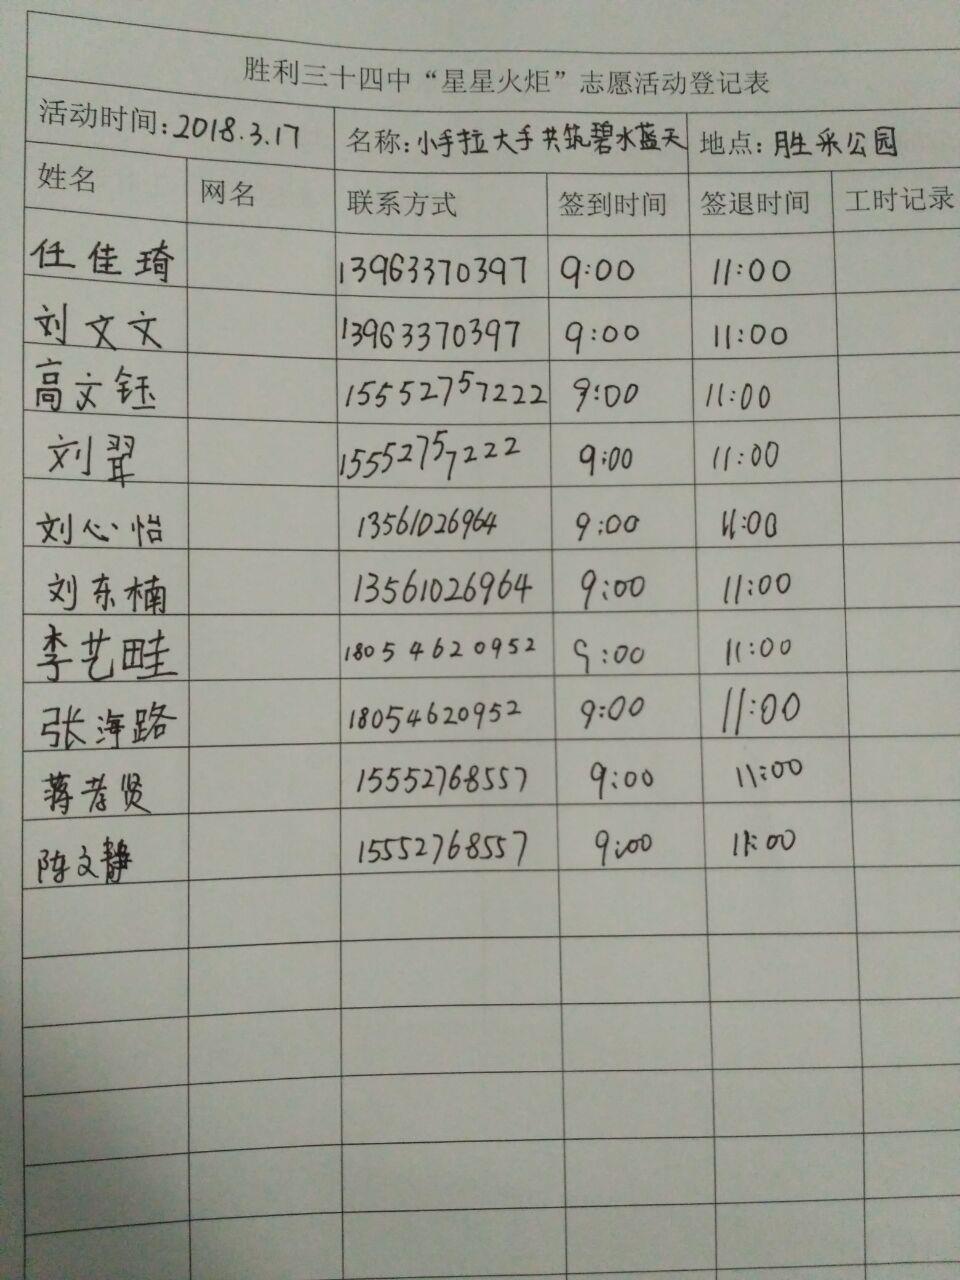 胜利三十四中“星星火炬”志愿活动登记表
活动时间:2018.3.17 名称:小手拉大手共筑碧水蓝天 地点:胜采公园
姓名 网名 联系方式 签到时间 签退时间 工时记录
任佳琦 13963370397 9:00 11:00
刘文文 13963370397 9:00 11:00
高文钰 15552757222 9:00 11:00
刘翠 15552757222 9:00 11:00
刘心怡 13561026964 9:00 11:00
刘东楠 13561026964 9:00 11:00
李艺畦 18054620952 9:00 11:00
张海路 18054620952 9:00 11:00
蒋孝贤 15552768557 9:00 11:00
陈文静 15552768557 9:00 11:00